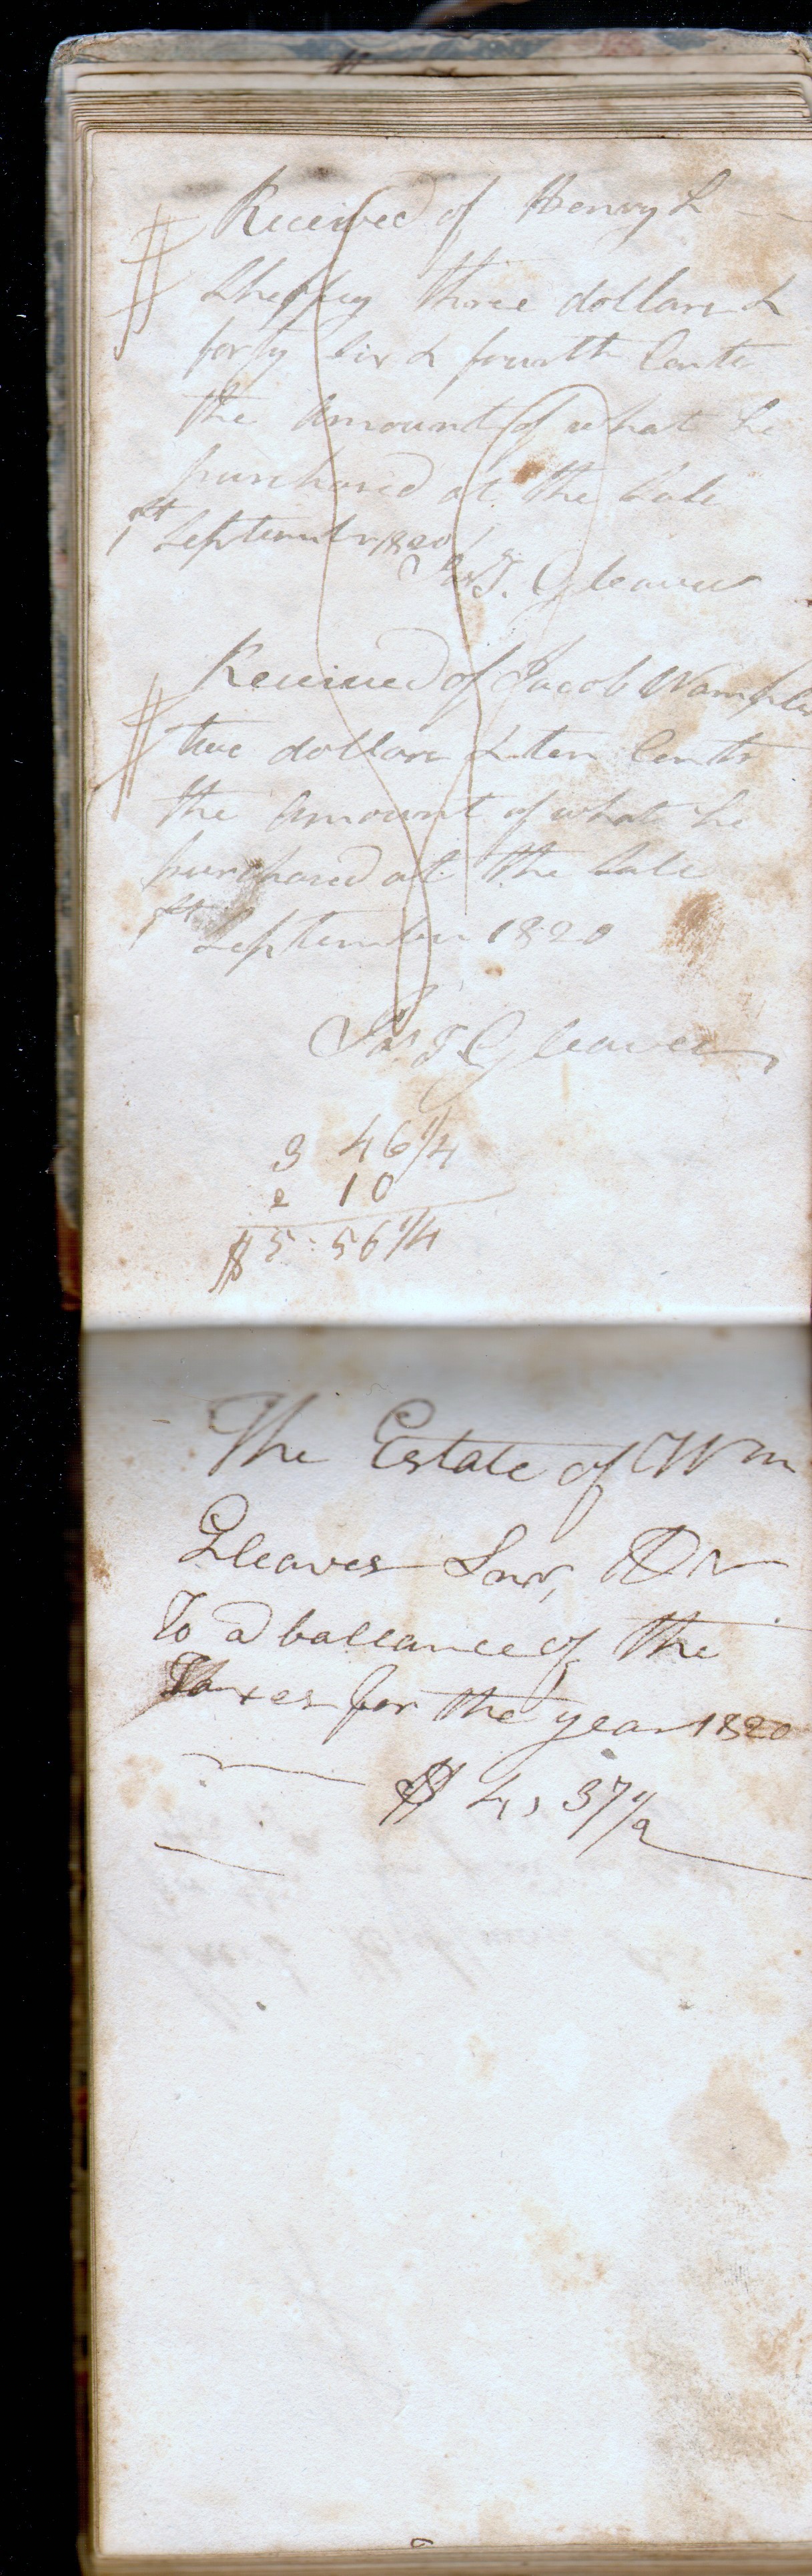 Received of Henry L
# Sheffey three dollars &
forty six & fourth Cents
the amount of what he
purchased at the Sale
1st September 1820
Jas T. Gleaves
Received of Jacob Wampler
# two dollars & ten Cents
the amount of what he
purchased at the Sale
1st September 1820
Jas T. Gleaves
3 46 1/4
2 10
$5:56 1/4
The Estate of Wm
Gleaves Snr, Dr
To a ballance of the
Taxes for the year 1820
$ 4, 37 1/2